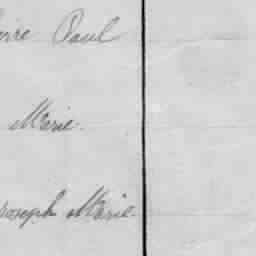 Paul
Marie.
Joseph Marie.